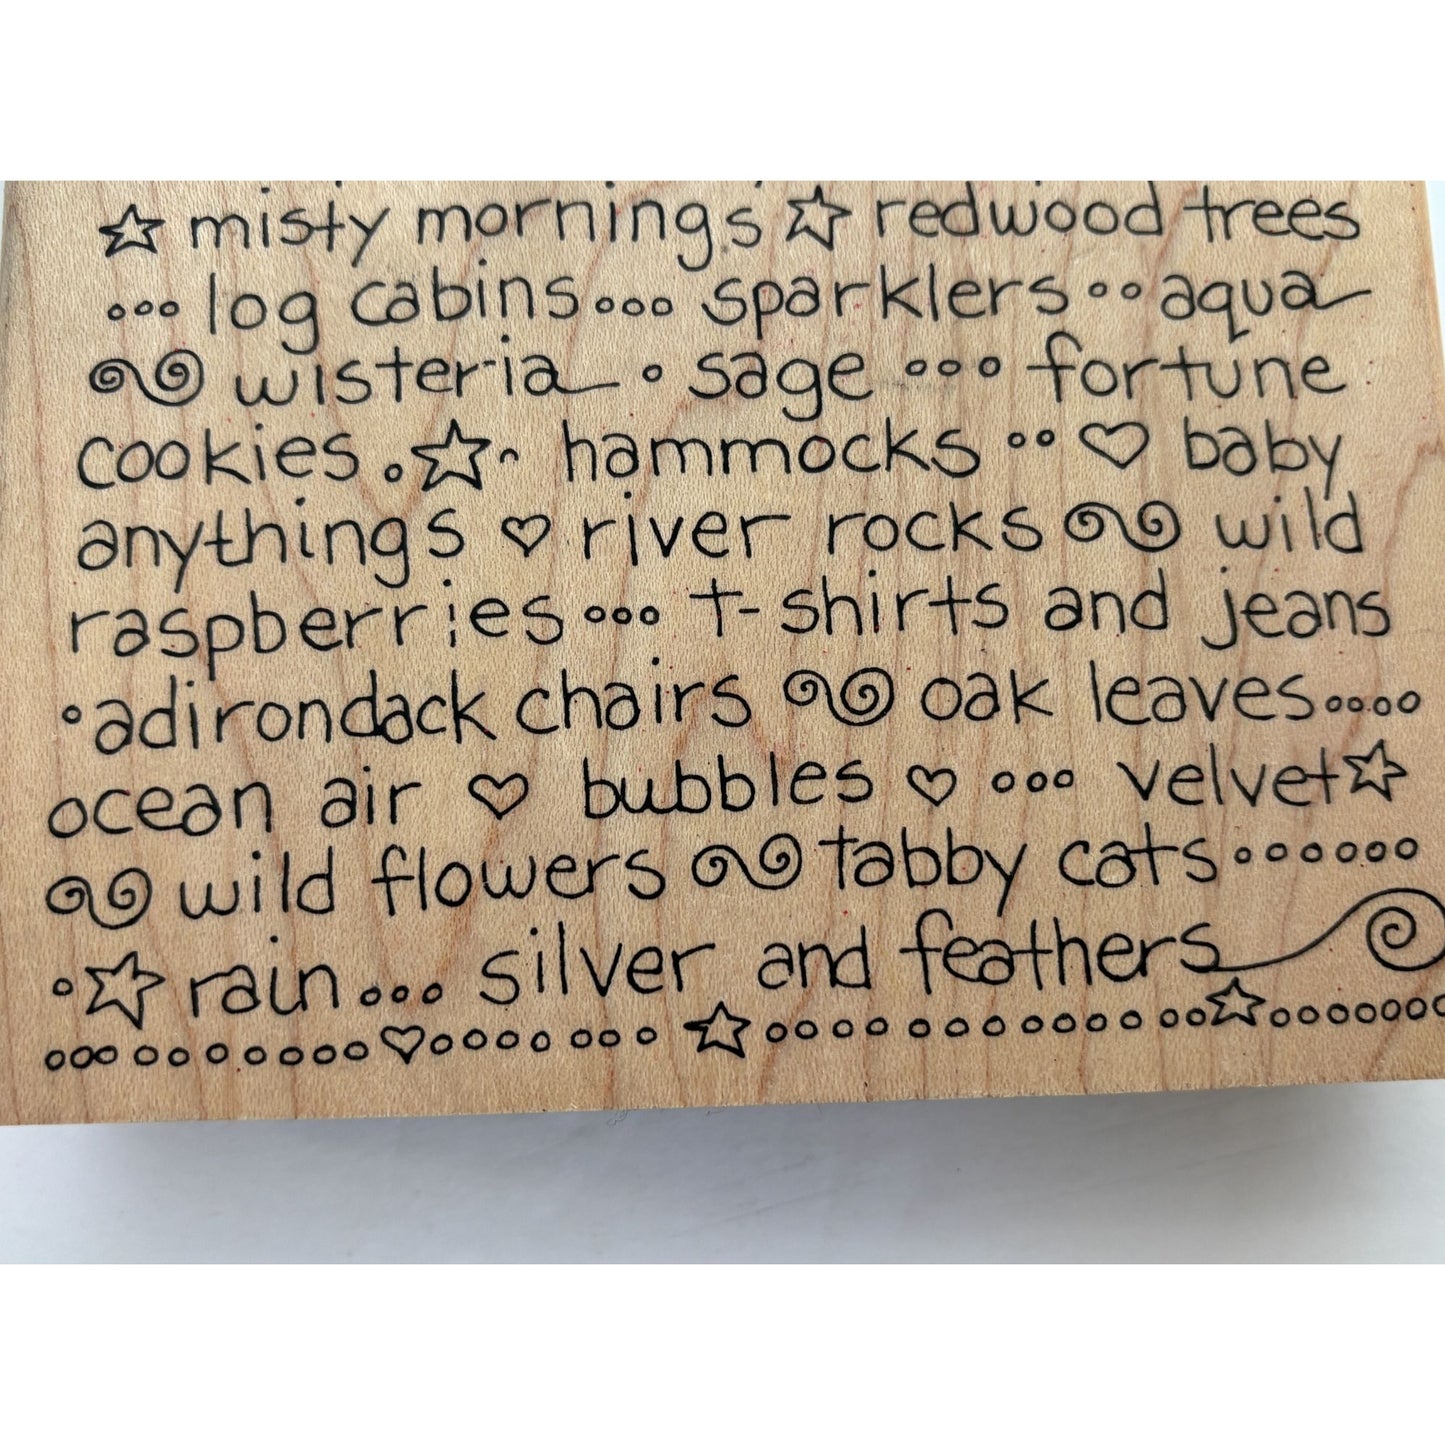 misty mornings redwood trees
...log cabins... sparklers..aqua
wisteria . sage ... fortune
cookies. hammocks .. baby
anythings river rocks wild
raspberries... t-shirts and jeans
.adirondack chairs oak leaves.....
ocean air bubbles ... velvet
wild flowers tabby cats......
.rain... silver and feathers